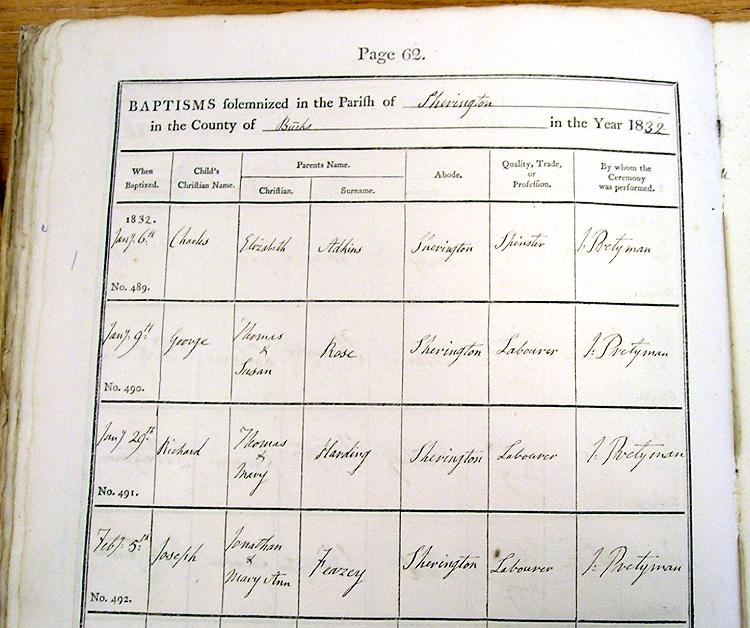 Page 62.
BAPTISMS solemnized in the Parish of Sherington
in the County of Bucks in the Year 1832
When Baptized. Child's Christian Name. Parents Name. Christian. Surname. Abode. Quality, Trade, or Profession. By whom the Ceremony was performed.
1832.
Jany. 6th Charles Elizabeth Adkins Sherington Spinster J. Pretyman
No. 489.
Jany. 9th George Thomas & Susan Rose Sherington Labourer J. Pretyman
No. 490.
Jany 29th Richard Thomas & Mary Harding Sherington Labourer J. Pretyman
No. 491.
Feby. 5th Joseph Jonathan & Mary Ann Feazey Sherington Labourer J. Pretyman
No. 492.